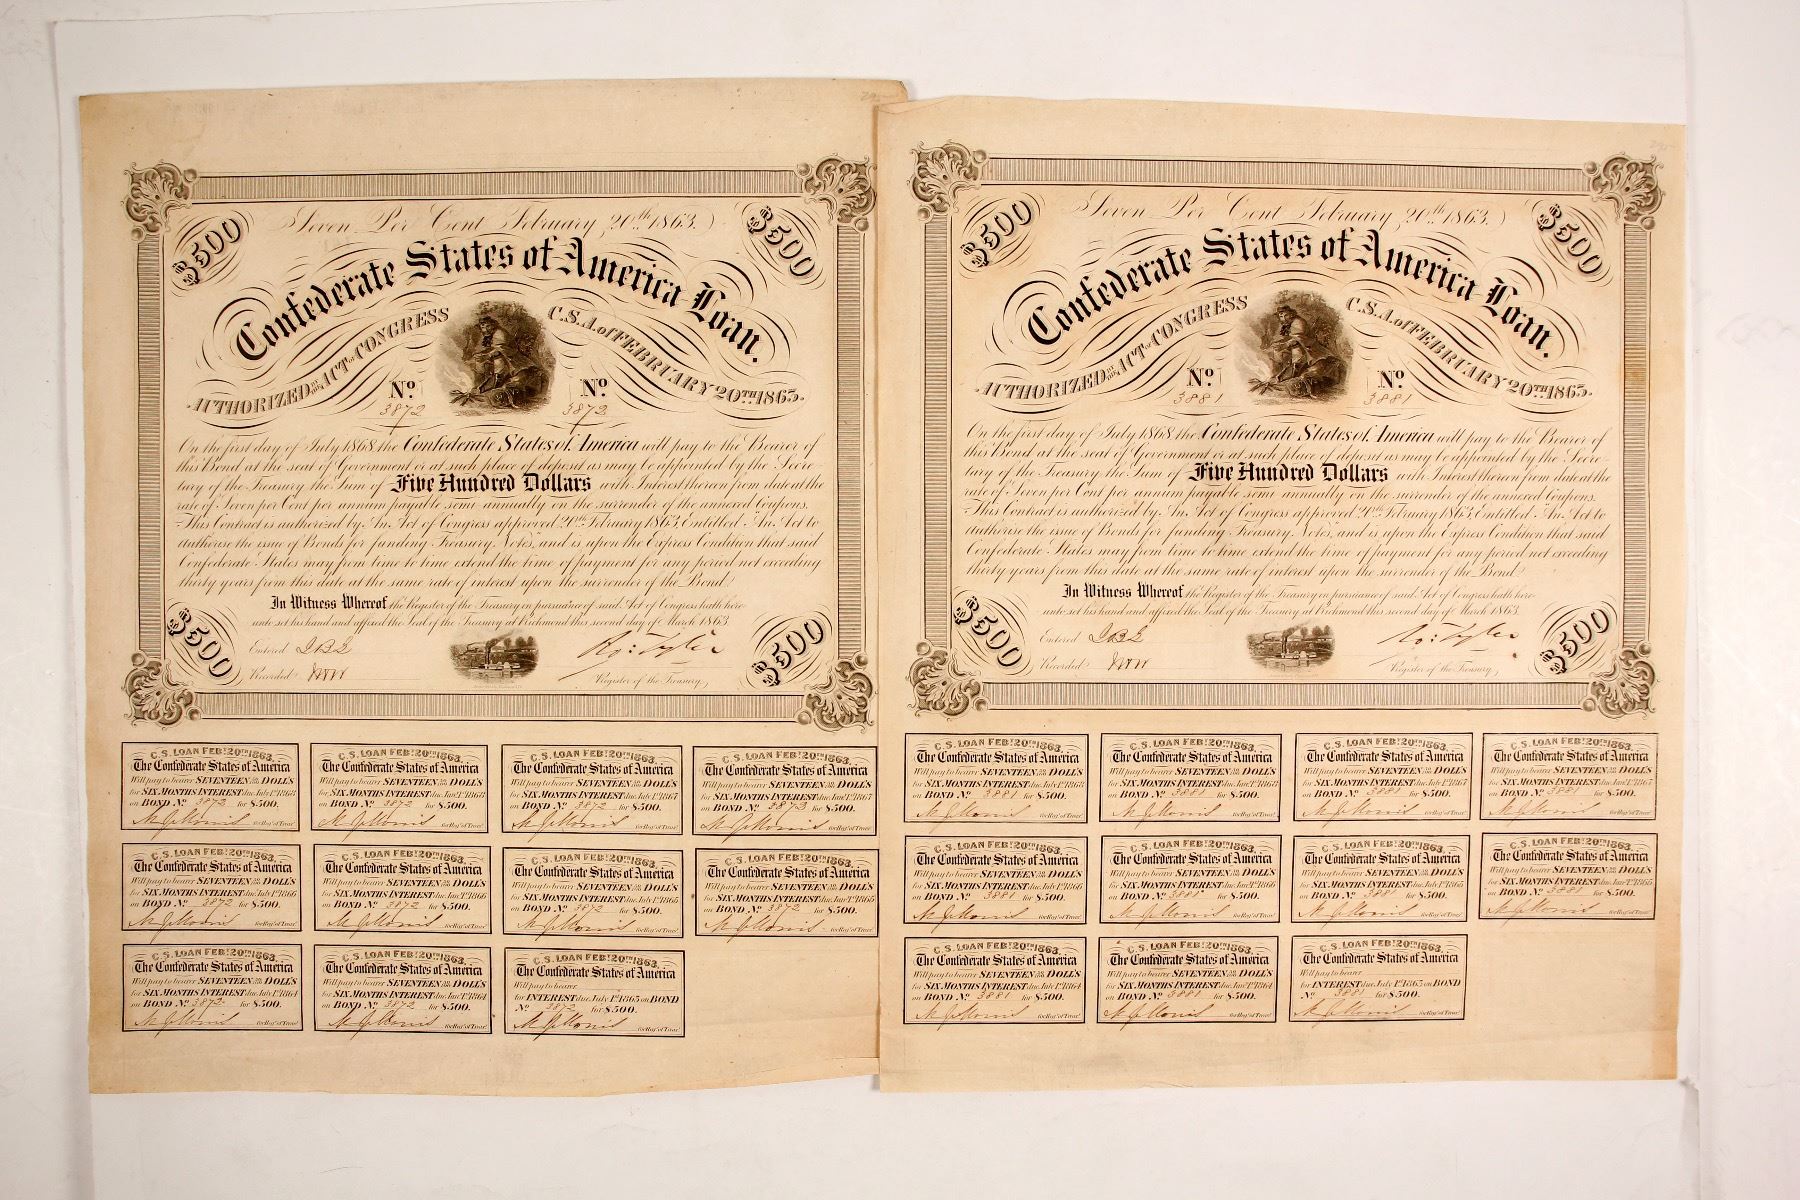 Seven Per Cent February 20th 1863.
$500
$500
Confederate States of America Loan.
AUTHORIZED BY THE ACT OF CONGRESS C.S.A. of FEBRUARY 20TH 1863.
No. No.
3872 3872
On the first day of July 1868 the Confederate States of America will pay to the Bearer of
this Bond at the seat of Government or at such place of deposit as may be appointed by the Secre-
tary of the Treasury the Sum of Five Hundred Dollars with Interest thereon from date at the
rate of Seven per Cent per annum payable semi annually on the surrender of the annexed Coupons.
This Contract is authorized by An Act of Congress approved 20th February 1863, Entitled "An Act to
authorise the issue of Bonds for funding Treasury Notes", and is upon the Express Condition that said
Confederate States may from time to time extend the time of payment for any period not exceeding
thirty years from this date at the same rate of interest upon the surrender of the Bond.
In Witness Whereof the Register of the Treasury in pursuance of said Act of Congress hath here-
unto set his hand and affixed the Seal of the Treasury at Richmond this second day of March 1863.
$500
Entered
Recorded
Ro: Tyler
Register of the Treasury
$500
C.S. LOAN FEBY. 20TH 1863.
The Confederate States of America
Will pay to bearer SEVENTEEN 50/100 DOLL'S
for SIX MONTHS INTEREST due July 1st 1868
on BOND No. 3872 for $500.
for Reg'r of Treas'y
C.S. LOAN FEBY. 20TH 1863.
The Confederate States of America
Will pay to bearer SEVENTEEN 50/100 DOLL'S
for SIX MONTHS INTEREST due Jany. 1st 1868
on BOND No. 3872 for $500.
for Reg'r of Treas'y
C.S. LOAN FEBY. 20TH 1863.
The Confederate States of America
Will pay to bearer SEVENTEEN 50/100 DOLL'S
for SIX MONTHS INTEREST due July 1st 1867
on BOND No. 3872 for $500.
for Reg'r of Treas'y
C.S. LOAN FEBY. 20TH 1863.
The Confederate States of America
Will pay to bearer SEVENTEEN 50/100 DOLL'S
for SIX MONTHS INTEREST due Jany. 1st 1867
on BOND No. 3872 for $500.
for Reg'r of Treas'y
C.S. LOAN FEBY. 20TH 1863.
The Confederate States of America
Will pay to bearer SEVENTEEN 50/100 DOLL'S
for SIX MONTHS INTEREST due July 1st 1866
on BOND No. 3872 for $500.
for Reg'r of Treas'y
C.S. LOAN FEBY. 20TH 1863.
The Confederate States of America
Will pay to bearer SEVENTEEN 50/100 DOLL'S
for SIX MONTHS INTEREST due Jany. 1st 1866
on BOND No. 3872 for $500.
for Reg'r of Treas'y
C.S. LOAN FEBY. 20TH 1863.
The Confederate States of America
Will pay to bearer SEVENTEEN 50/100 DOLL'S
for SIX MONTHS INTEREST due July 1st 1865
on BOND No. 3872 for $500.
for Reg'r of Treas'y
C.S. LOAN FEBY. 20TH 1863.
The Confederate States of America
Will pay to bearer SEVENTEEN 50/100 DOLL'S
for SIX MONTHS INTEREST due Jany. 1st 1865
on BOND No. 3872 for $500.
for Reg'r of Treas'y
C.S. LOAN FEBY. 20TH 1863.
The Confederate States of America
Will pay to bearer SEVENTEEN 50/100 DOLL'S
for SIX MONTHS INTEREST due July 1st 1864
on BOND No. 3872 for $500.
for Reg'r of Treas'y
C.S. LOAN FEBY. 20TH 1863.
The Confederate States of America
Will pay to bearer SEVENTEEN 50/100 DOLL'S
for SIX MONTHS INTEREST due Jany. 1st 1864
on BOND No. 3872 for $500.
for Reg'r of Treas'y
C.S. LOAN FEBY. 20TH 1863.
The Confederate States of America
Will pay to bearer
for INTEREST due July 1st 1863 on BOND
No. 3872 for $500.
for Reg'r of Treas'y
Seven Per Cent February 20th 1863.
$500
$500
Confederate States of America Loan.
AUTHORIZED BY THE ACT OF CONGRESS C.S.A. of FEBRUARY 20TH 1863.
No. No.
3881 3881
On the first day of July 1868 the Confederate States of America will pay to the Bearer of
this Bond at the seat of Government or at such place of deposit as may be appointed by the Secre-
tary of the Treasury the Sum of Five Hundred Dollars with Interest thereon from date at the
rate of Seven per Cent per annum payable semi annually on the surrender of the annexed Coupons.
This Contract is authorized by An Act of Congress approved 20th February 1863, Entitled "An Act to
authorise the issue of Bonds for funding Treasury Notes", and is upon the Express Condition that said
Confederate States may from time to time extend the time of payment for any period not exceeding
thirty years from this date at the same rate of interest upon the surrender of the Bond.
In Witness Whereof the Register of the Treasury in pursuance of said Act of Congress hath here-
unto set his hand and affixed the Seal of the Treasury at Richmond this second day of March 1863.
$500
Entered
Recorded
Ro: Tyler
Register of the Treasury
$500
C.S. LOAN FEBY. 20TH 1863.
The Confederate States of America
Will pay to bearer SEVENTEEN 50/100 DOLL'S
for SIX MONTHS INTEREST due July 1st 1868
on BOND No. 3881 for $500.
for Reg'r of Treas'y
C.S. LOAN FEBY. 20TH 1863.
The Confederate States of America
Will pay to bearer SEVENTEEN 50/100 DOLL'S
for SIX MONTHS INTEREST due Jany. 1st 1868
on BOND No. 3881 for $500.
for Reg'r of Treas'y
C.S. LOAN FEBY. 20TH 1863.
The Confederate States of America
Will pay to bearer SEVENTEEN 50/100 DOLL'S
for SIX MONTHS INTEREST due July 1st 1867
on BOND No. 3881 for $500.
for Reg'r of Treas'y
C.S. LOAN FEBY. 20TH 1863.
The Confederate States of America
Will pay to bearer SEVENTEEN 50/100 DOLL'S
for SIX MONTHS INTEREST due Jany. 1st 1867
on BOND No. 3881 for $500.
for Reg'r of Treas'y
C.S. LOAN FEBY. 20TH 1863.
The Confederate States of America
Will pay to bearer SEVENTEEN 50/100 DOLL'S
for SIX MONTHS INTEREST due July 1st 1866
on BOND No. 3881 for $500.
for Reg'r of Treas'y
C.S. LOAN FEBY. 20TH 1863.
The Confederate States of America
Will pay to bearer SEVENTEEN 50/100 DOLL'S
for SIX MONTHS INTEREST due Jany. 1st 1866
on BOND No. 3881 for $500.
for Reg'r of Treas'y
C.S. LOAN FEBY. 20TH 1863.
The Confederate States of America
Will pay to bearer SEVENTEEN 50/100 DOLL'S
for SIX MONTHS INTEREST due July 1st 1865
on BOND No. 3881 for $500.
for Reg'r of Treas'y
C.S. LOAN FEBY. 20TH 1863.
The Confederate States of America
Will pay to bearer SEVENTEEN 50/100 DOLL'S
for SIX MONTHS INTEREST due Jany. 1st 1865
on BOND No. 3881 for $500.
for Reg'r of Treas'y
C.S. LOAN FEBY. 20TH 1863.
The Confederate States of America
Will pay to bearer SEVENTEEN 50/100 DOLL'S
for SIX MONTHS INTEREST due July 1st 1864
on BOND No. 3881 for $500.
for Reg'r of Treas'y
C.S. LOAN FEBY. 20TH 1863.
The Confederate States of America
Will pay to bearer SEVENTEEN 50/100 DOLL'S
for SIX MONTHS INTEREST due Jany. 1st 1864
on BOND No. 3881 for $500.
for Reg'r of Treas'y
C.S. LOAN FEBY. 20TH 1863.
The Confederate States of America
Will pay to bearer
for INTEREST due July 1st 1863 on BOND
No. 3881 for $500.
for Reg'r of Treas'y